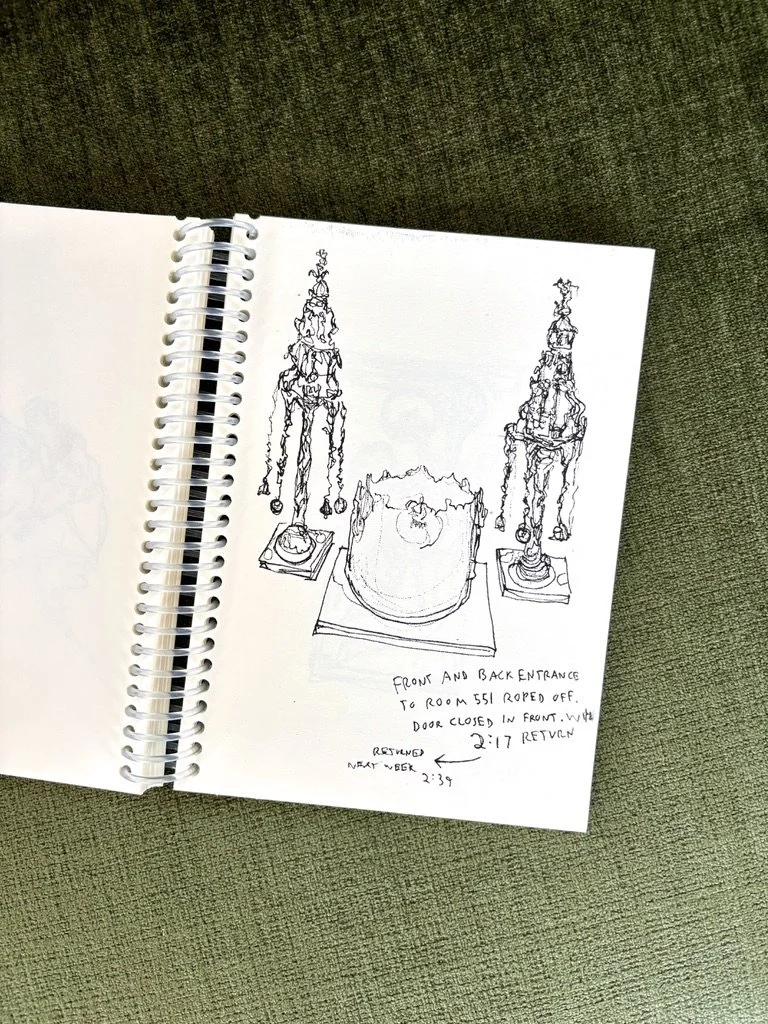 FRONT AND BACK ENTRANCE
TO ROOM 551 ROPED OFF.
DOOR CLOSED IN FRONT.
2:17 RETURN
RETURNED
NEXT WEEK
2:39